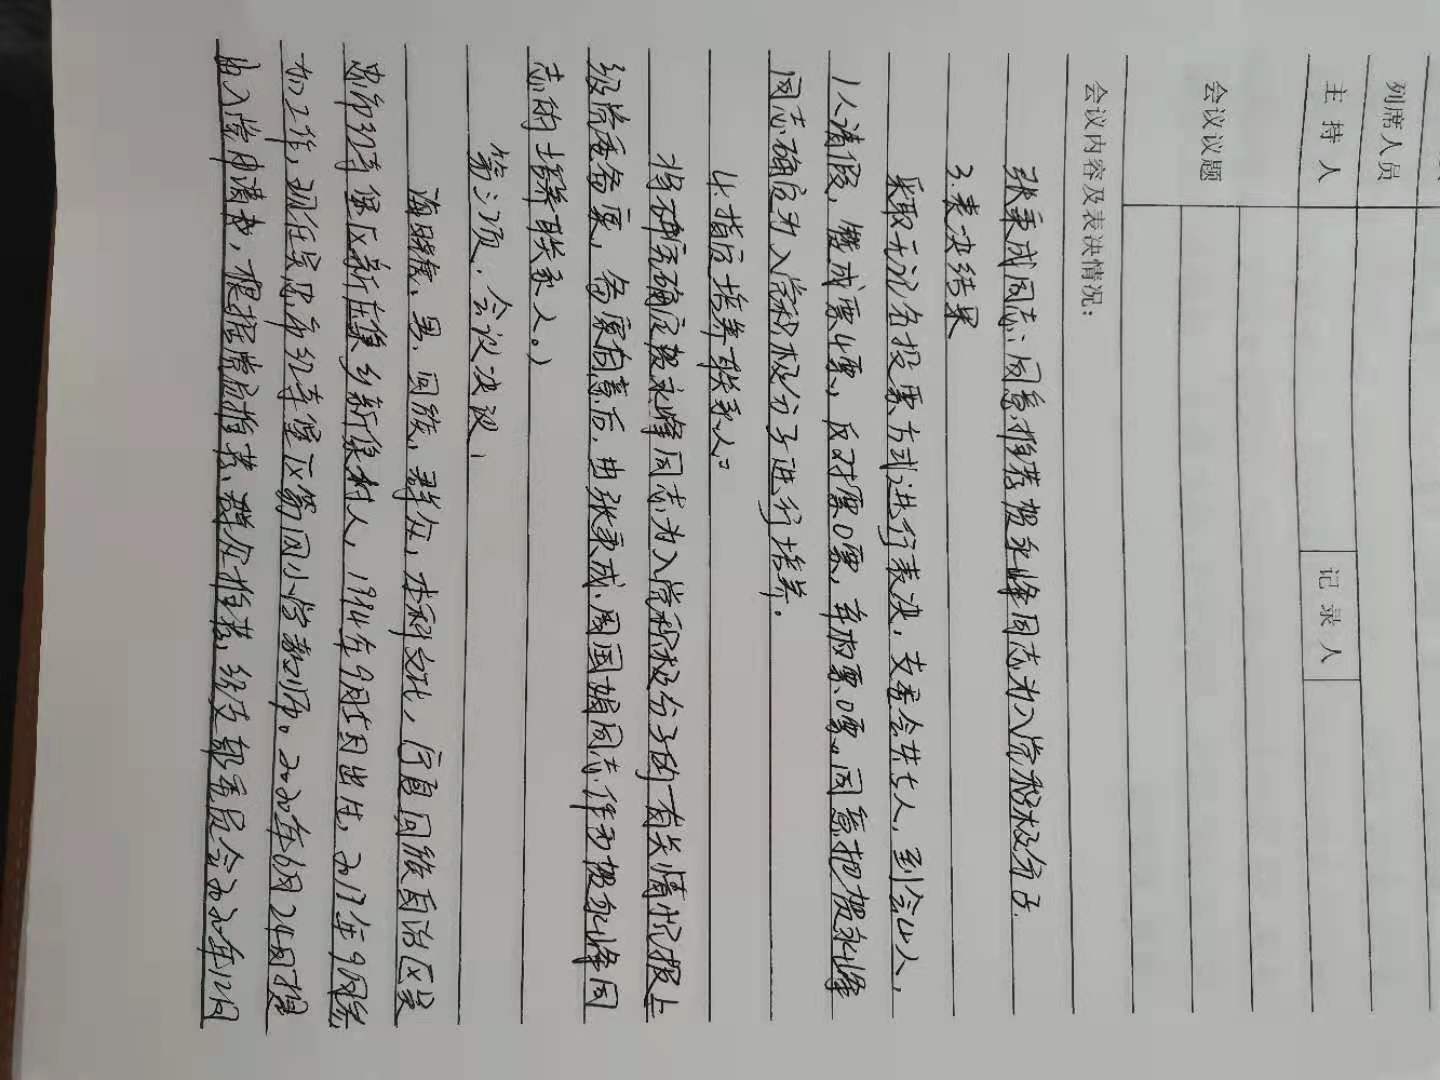 列席人员
主持人
记录人
会议议题
会议内容及表决情况：
张秉成同志：同意推荐贺永峰同志为入党积极分子。
3.表决结果
采取无记名投票方式进行表决，支委会共七人，到会山人，
1人请假，赞成票4票，反对票0票，弃权票0票。同意把贺永峰
同志确定为入党积极分子进行培养。
4.指定培养联系人。
将研究确定贺永峰同志为入党积极分子的有关情况报上
级党委备案，备案同意后，由张秉成、周国娟同志作为贺永峰同
志的培养联系人。）
第三项：会议决议：
海，男，回族，群众，本科文化，宁夏回族自治区吴
忠市红寺堡区新庄集乡新集村人，出生，2017年9月参
加工作，现任吴忠市红寺堡区第四小学教师。2020年6月24日提
出入党申请书，根据党员推荐、群众推荐，经支部委员会2020年12月